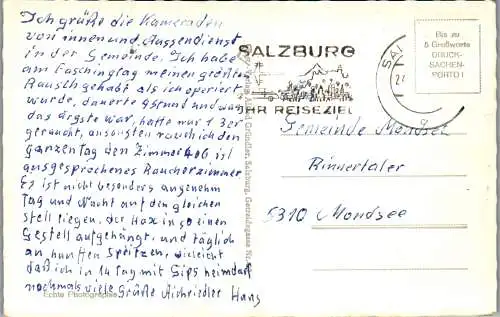 Ich grüße die Kameraden
von innen und Aussendienst
in der Gemeinde. Ich habe
am Faschingtag meinen größten
Rausch gehabt als ich operiert
wurde, dauerte 9 Stund und was
das ärgste war, hatte nur 1 3er
geraucht, ansonsten rauch ich den
ganzen Tag den Zimmer 406 ist
ausgesprochenes Raucherzimmer
Es ist nicht besonders angenehm
Tag und Nacht auf den gleichen
stell liegen, der Hax in so einen
Gestell aufgehängt, und täglich
an hunffen Spritzen, vielleicht
daß ich in 14 Tag mit Gips heimdarf
nochmals viele Grüße Aichriedler Hans
Echte Photographie
Gründler, Salzburg, Getreidegasse Nr.
SALZBURG
IHR REISEZIEL
SAL
Bis zu
5 Grußworte
DRUCK-
SACHEN-
PORTO!
Gemeinde Mondsee
Rinnertaler
5310 Mondsee